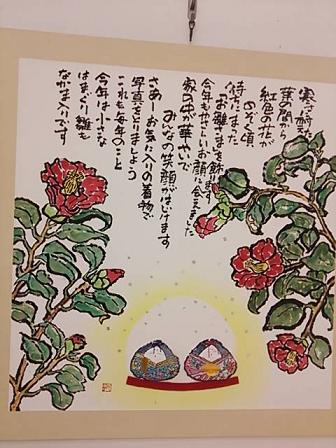 寒さに耐え
葉の間から
紅色の花が
のぞく頃
待ちに待った
「お雛さま」を飾ります
今年もやさしいお顔に会えました
家の中が華やいで
みんなの笑顔がはじけます
さあーお気に入りの着物で
写真をとりましょう
これも毎年のこと
今年は小さな
はまぐり雛も
なかま入りです